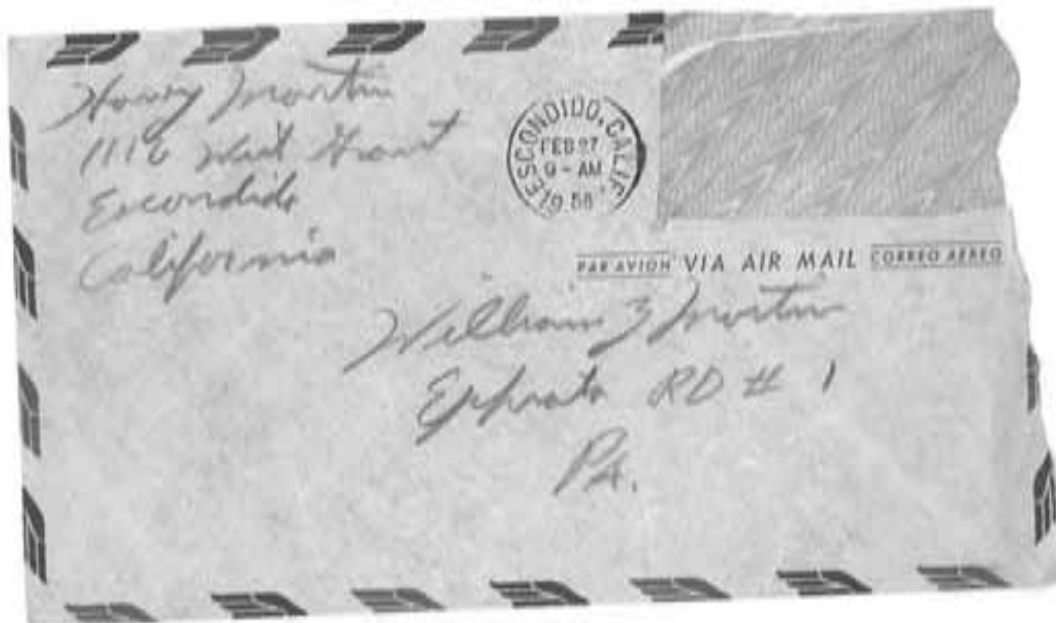 Harvey Martin
1116 West Grant
Escondido
California
ESCONDIDO, CALIF.
FEB 27
9 - AM
1958
PAR AVION VIA AIR MAIL CORREO AEREO
William Z Martin
Ephrata RD # 1
Pa.